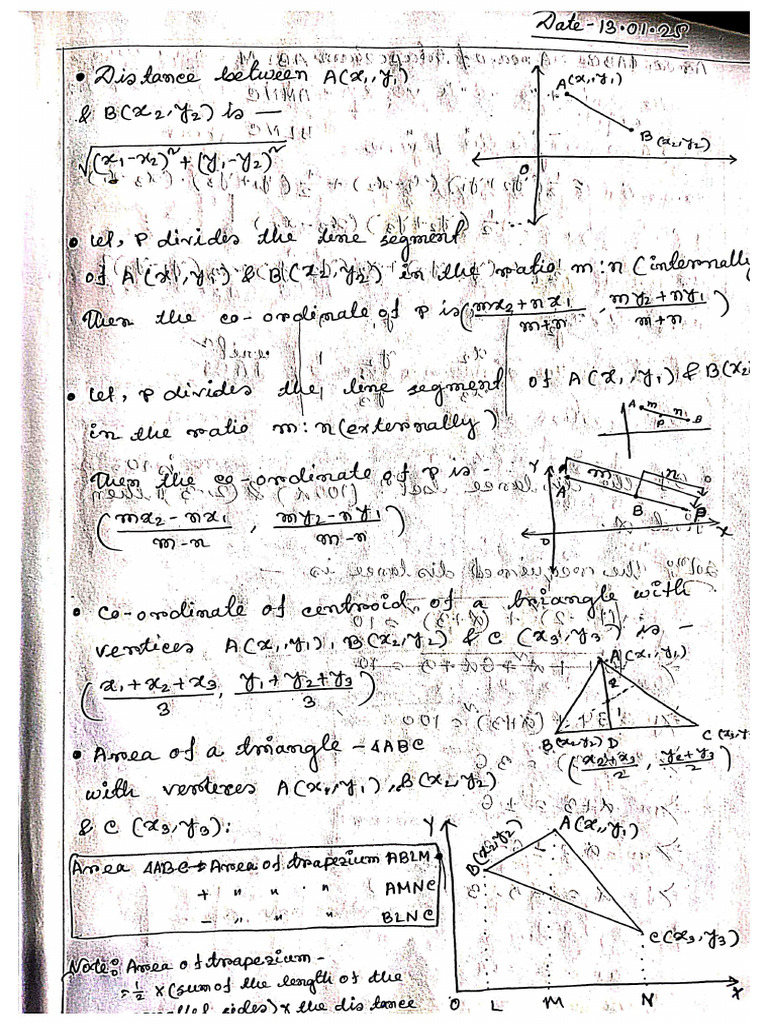 Date - 13.01.25
• Distance between A(x₁, y₁)
& B(x₂, y₂) is —
√(x₁-x₂)² + (y₁-y₂)²
A(x₁, y₁)
B(x₂, y₂)
O
• Let, P divides the line segment
of A(x₁, y₁) & B(x₂, y₂) in the ratio m:n (internally
Then the co-ordinate of P is (mx₂+nx₁/m+n, my₂+ny₁/m+n)
• Let, P divides the line segment of A(x₁, y₁) & B(x₂
in the ratio m:n (externally)
A m P n B
Then the co-ordinate of P is -
(mx₂-nx₁/m-n, my₂-ny₁/m-n)
Y
A
m
n
B
P
O
X
• Co-ordinate of centroid of a triangle with
vertices A(x₁, y₁), B(x₂, y₂) & C (x₃, y₃) is -
(x₁+x₂+x₃/3, y₁+y₂+y₃/3)
A(x₁, y₁)
2
1
B(x₂, y₂) D
C(x₃, y
(x₂+x₃/2, y₂+y₃/2)
• Area of a triangle - ΔABC
with vertexes A(x₁, y₁), B(x₂, y₂)
& C (x₃, y₃):
Area ΔABC → Area of trapezium ABLM
+ " " " AMNC
- " " " BLNC
Y
A(x₁, y₁)
B(x₂, y₂)
C(x₃, y₃)
O L M N X
Note: Area of trapezium -
= ½ × (sum of the length of the
sides) × the distance